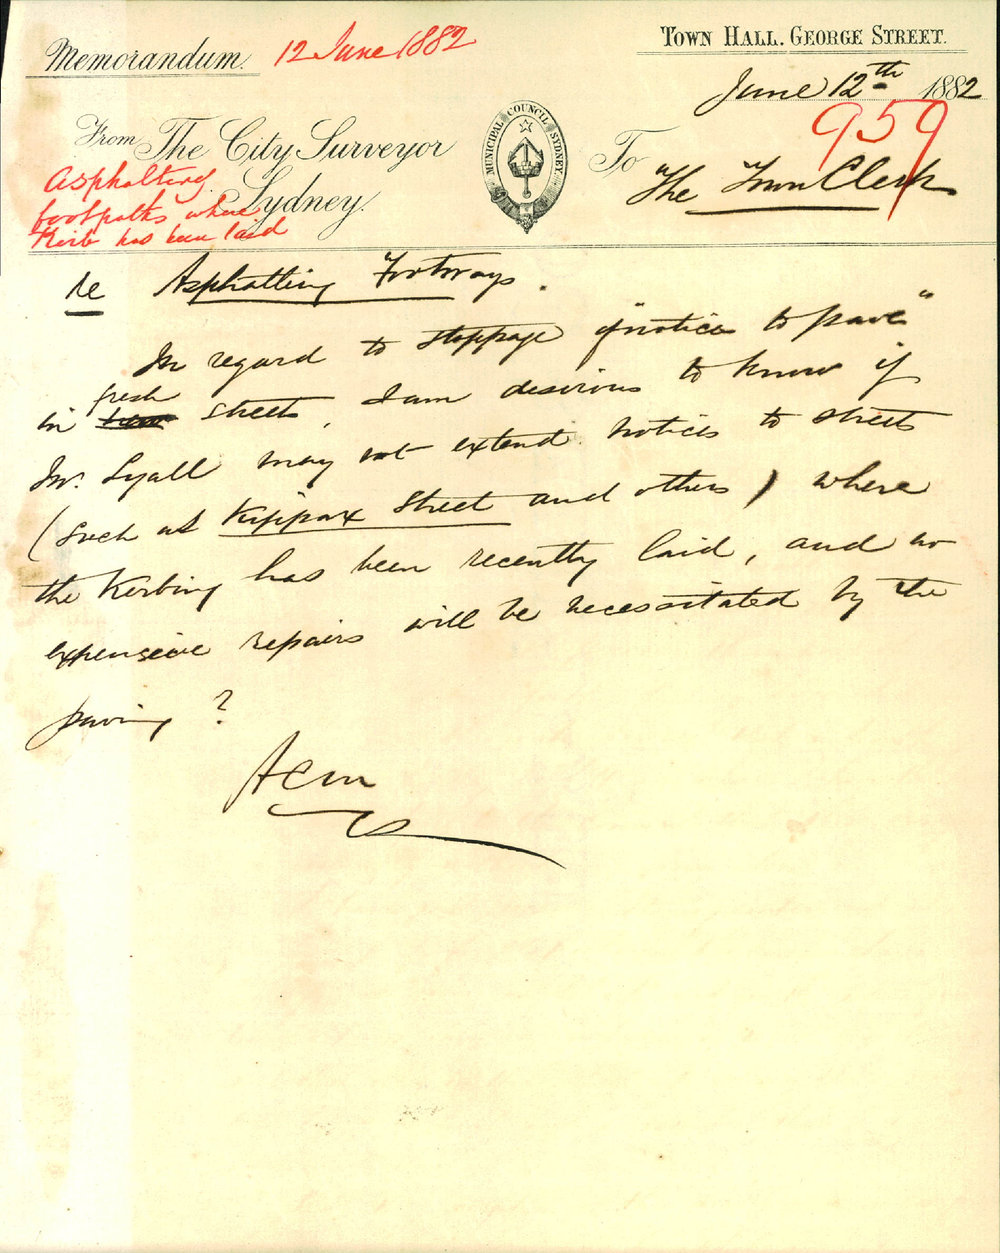 Memorandum. 12 June 1882
TOWN HALL. GEORGE STREET.
June 12th 1882
959
From The City Surveyor
Sydney.
MUNICIPAL COUNCIL SYDNEY
To The Town Clerk
Asphalting
footpaths where
Kerb has been laid
re Asphalting Footways.
In regard to stoppage of "notices to pave"
in fresh streets, I am desirous to know if
Mr. Lyall may not extend notices to streets
(such as Kippax Street and others) where
the Kerbing has been recently laid, and no
expensive repairs will be necessitated by the
paving?